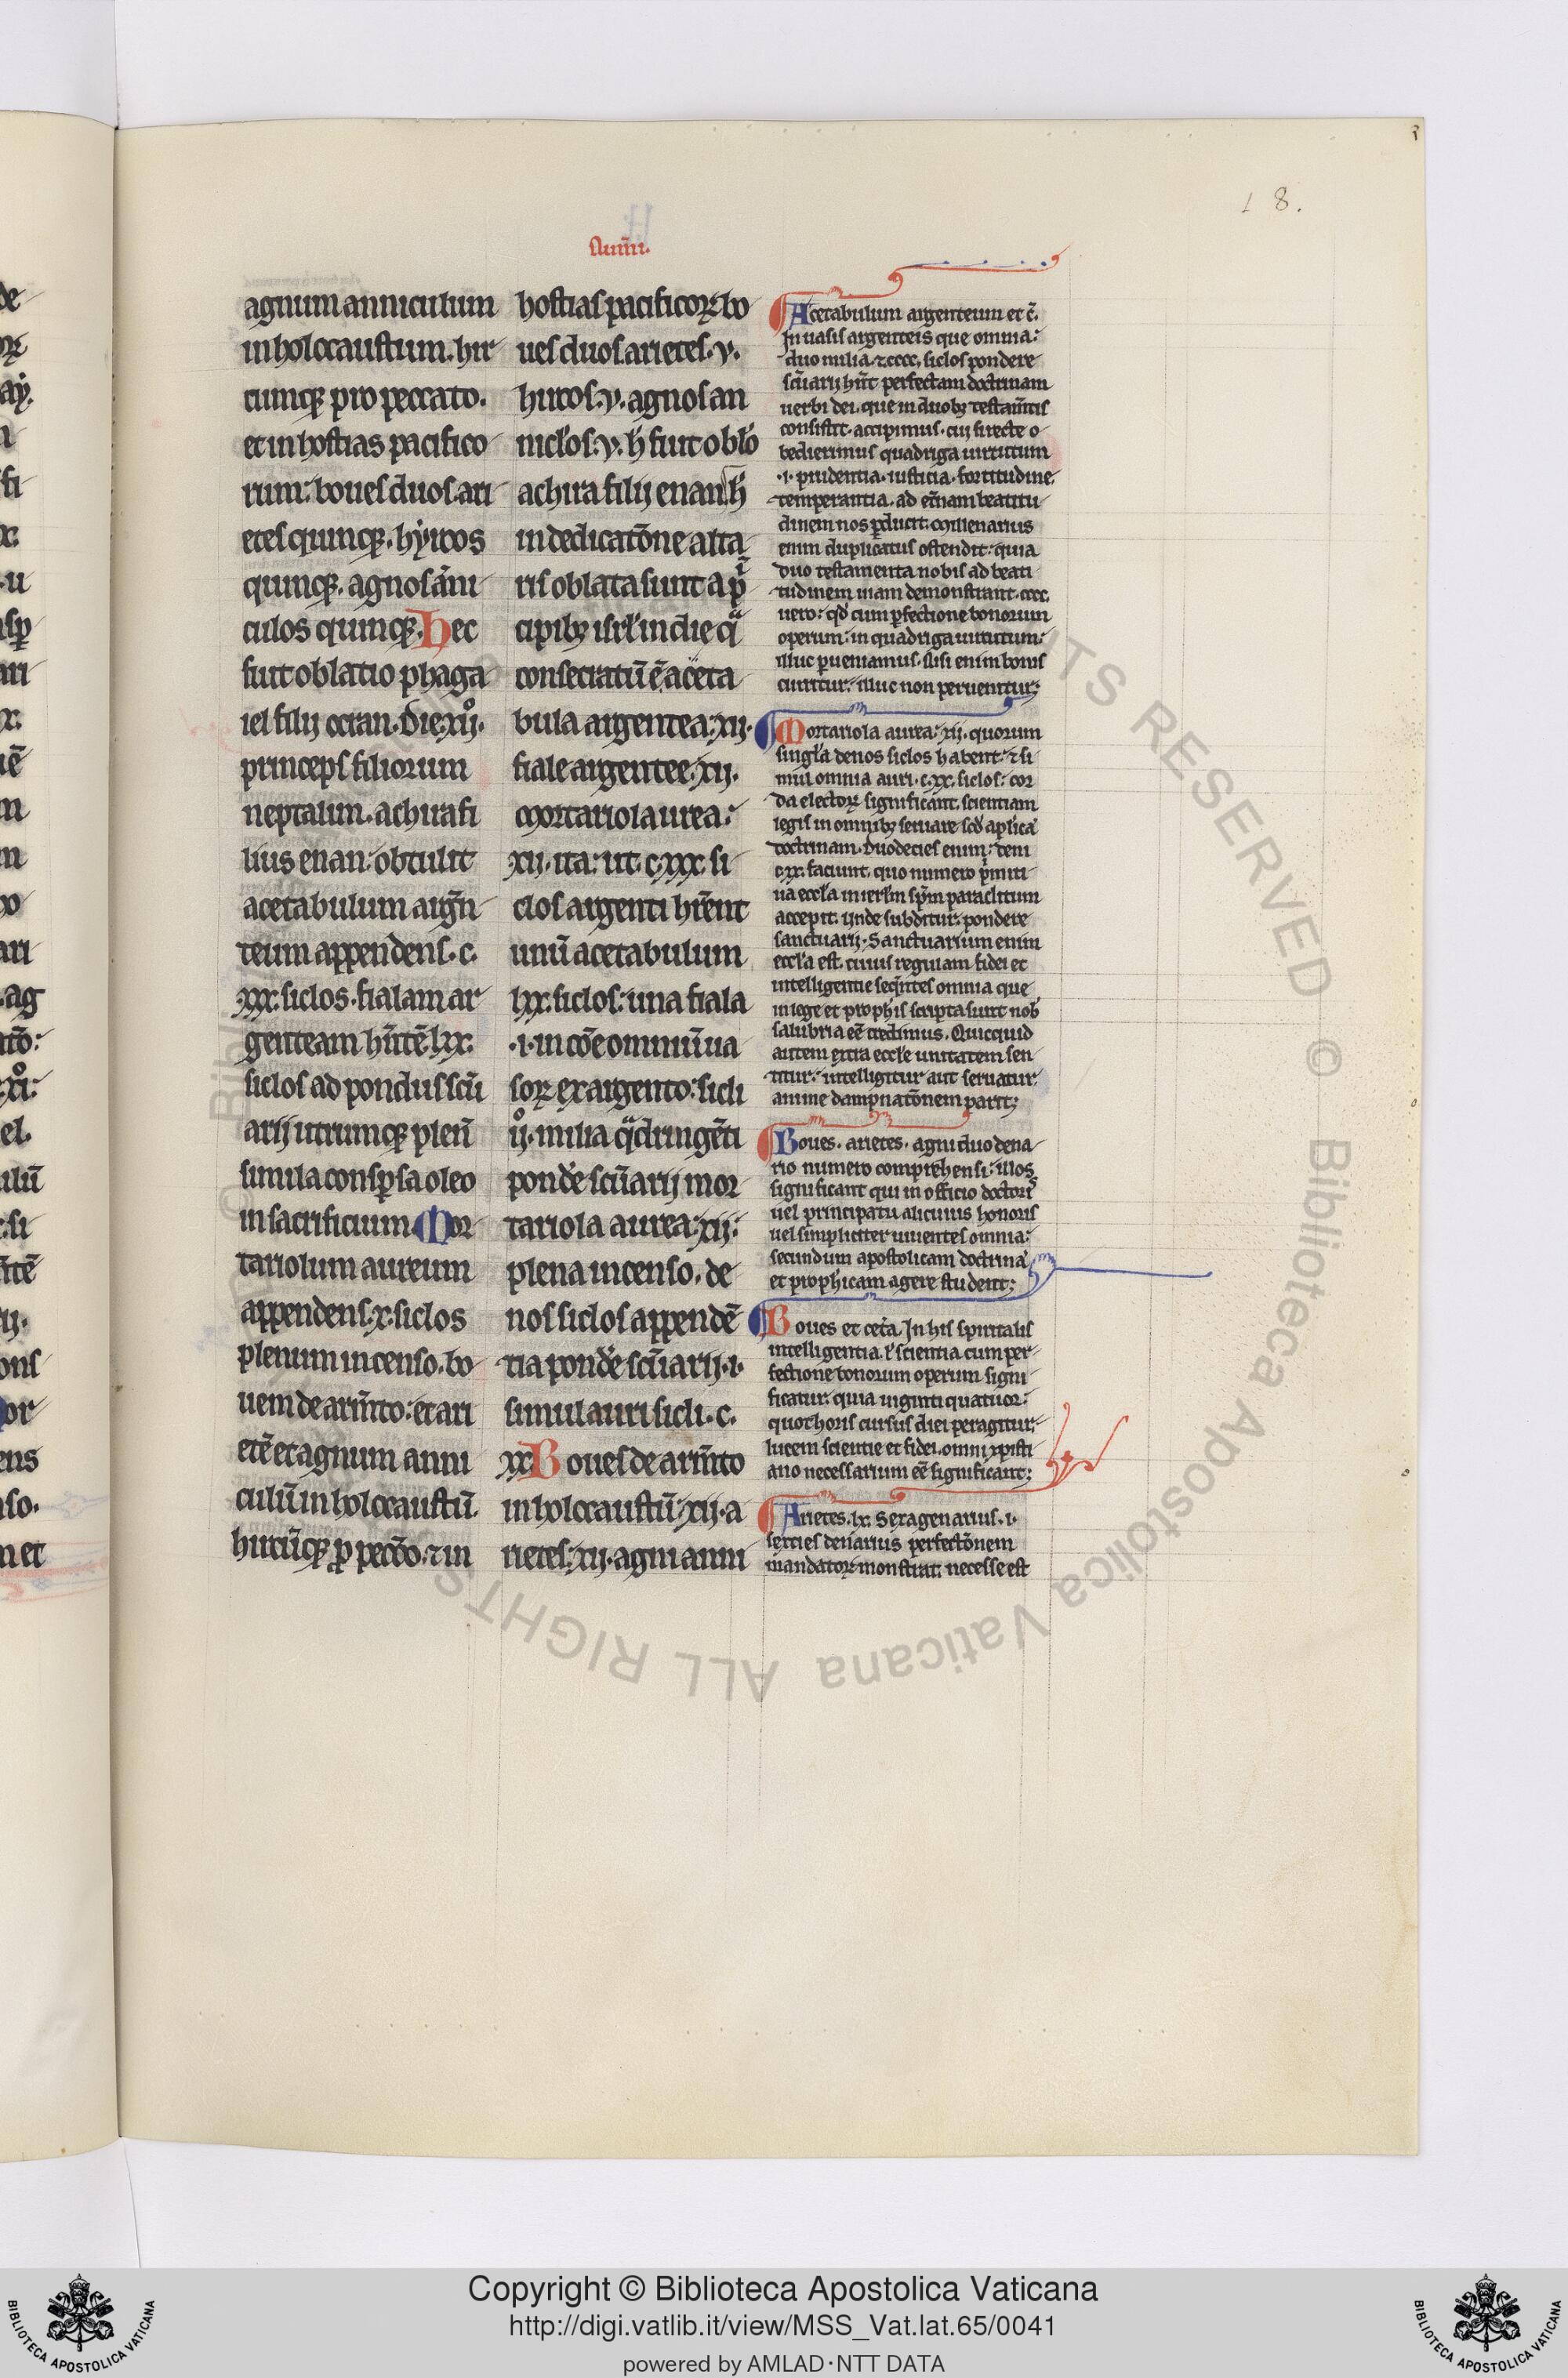 18.
Num̄i.
agnum anniculum
in holocaustum. hir
cumq; pro peccato.
et in hostias pacifico
rum: boues duos. ari
etes quinq;. hẏrcos
quinq;. agnos anni
culos quinq;. Hec
fuit oblatio phaga
iel filij ocran. Die. xijº.
princeps filiorum
neptalim. achira fi
lius enan: obtulit
acetabulum argn̄
teum appendens. c.
xxx. siclos. fialam ar
genteam hn̄tē. lxx.
siclos ad pondus scū
arij utrumq; plen̄
simila consꝑsa oleo
in sacrificium. Mor
tariolum aureum
appendens. x. siclos
plenum incenso. bo
uem de arm̄to: et ari
etē et agnum anni
culū in holocaustū.
hircūq; ꝓ pecc̄o. ⁊ in
hostias pacificoꝝ. bo
ues duos. arietes. v.
hircos. v. agnos an
nicl'os. v. h̄ fuit obl'o
achira filij enan. h̄
in dedicatōne alta
ris oblata sunt a pⁱn
cipibꝫ isrl' in die qͣ
consecratū ē. aceta
bula argentea: xij.
fiale argentee: xij.
Mortariola urea:
xij. ita: ut. c. xxx. si
clos argenti hr̄ent
unū acetabulum
lxx. siclos: una fiala
.i. in cōe omniū ua
soꝝ ex argento: sicli
ijº. milia qͣdringēti
pond'e scūarij mor
tariola aurea: xij:
plena incenso. de
nos siclos appendē
tia pond'e scūarij. i.
simul auri sicli. c.
xx. Boues de arm̄to
in holocaustū: xij. a
rietes: xij. agni anni
Acetabulum argenteum et c̄.
In uasis argenteis que omnia:
duo milia. ⁊ cccc. siclos pondere
scūarij hn̄t perfectam doctrinam
uerbi dei. que in duobꝫ testam̄tis
consistit. accipimus. cui si recte o
bedierimus quadriga uirtutum
.i. prudentia. iusticia. fortitudine
temperantia. ad et̄nam beatitu
dinem nos ꝑducit. Millenarius
enim duplicatus ostendit: quia
duo testamenta nobis ad beati
tudinem uiam demonstrant. cccc.
uero: qd' cum ꝑfectione bonorum
operum: in quadriga uirtutum:
illuc ꝑueniamus. Nisi enim bonis
curritur: illuc non peruenitur;
Mortariola aurea: xij. quorum
singl'a denos siclos habent: ⁊ si
mul omnia auri. c. xx. siclos: cor
da electoꝝ significant. scientiam
legis in omnibꝫ seruare scd' apl'icā
doctrinam. Duodecies enim: deni
c. xx. faciunt. quo numero pⁱmiti
ua eccl'a in ierl'm sp̄m paraclitum
accepit. Vnde subditur: pondere
sanctuarij. Sanctuarium enim
eccl'a est. cuius regulam fidei et
intelligentie seqn̄tes omnia que
in lege et proph'is scripta sunt nob'
salubria eē credimus. Quicquid
autem extra eccl'e unitatem sen
titur: intelligitur aut seruatur:
anime dampnatōnem parit;
Boues. arietes. agni duodena
rio numero comprehensi: illos
significant qui in officio doctoris
uel principatu alicuius honoris
uel simpliciter uiuentes omnia:
secundum apostolicam doctrinā
et proph'icam agere student;
Boues et cet'a. In his spiritalis
intelligentia. l' scientia cum per
fectione bonorum operum signi
ficatur. quia uiginti quatuor:
quot horis cursus diei peragitur.
lucem scientie et fidei. omni xpisti
ano necessarium eē significant;
Arietes. lx. Sexagenarius. i.
sexties denarius perfectōnem
mandatoꝝ monstrat. necesse est
Copyright © Biblioteca Apostolica Vaticana
http://digi.vatlib.it/view/MSS_Vat.lat.65/0041
powered by AMLAD·NTT DATA